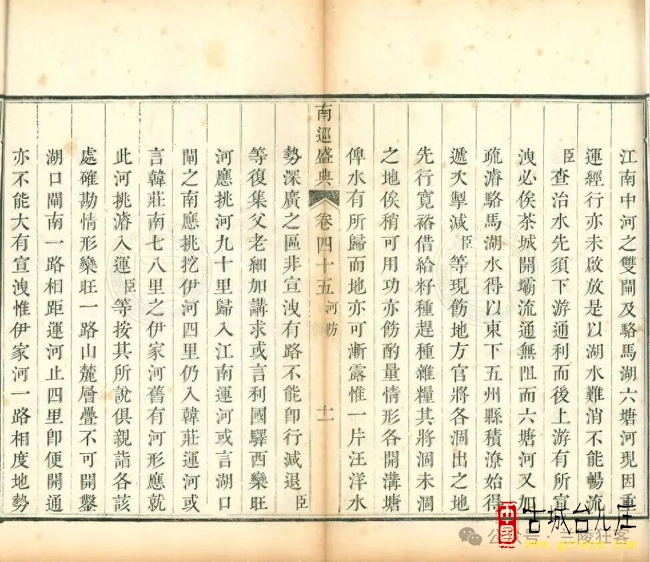 江南中河之雙閘及駱馬湖六塘河現因重
運經行亦未啟放是以湖水難消不能暢流
臣查治水先須下游通利而後上游有所宣
洩必俟茶城開壩流通無阻而六塘河又加
疏濬駱馬湖水得以東下五州縣積潦始得
遞次掣減臣等現飭地方官將各涸出之地
先行寬裕借給籽種趕種雜糧其將涸未涸
之地俟稍可用功亦飭酌量情形各開溝塘
俾水有所歸而地亦可漸露惟一片汪洋水
南巡盛典 卷四十五 河防 十一
勢深廣之區非宣洩有路不能卽行減退臣
等復集父老細加講求或言利國驛西欒旺
河應挑河九十里歸入江南運河或言湖口
閘之南應挑挖伊河四里仍入韓莊運河或
言韓莊南七八里之伊家河舊有河形應就
此河挑濬入運臣等按其所說俱親詣各該
處確勘情形欒旺一路山麓層疊不可開鑿
湖口閘南一路相距運河止四里卽便開通
亦不能大有宣洩惟伊家河一路相度地勢
公众号·兰陵狂客
中国 古城台儿庄